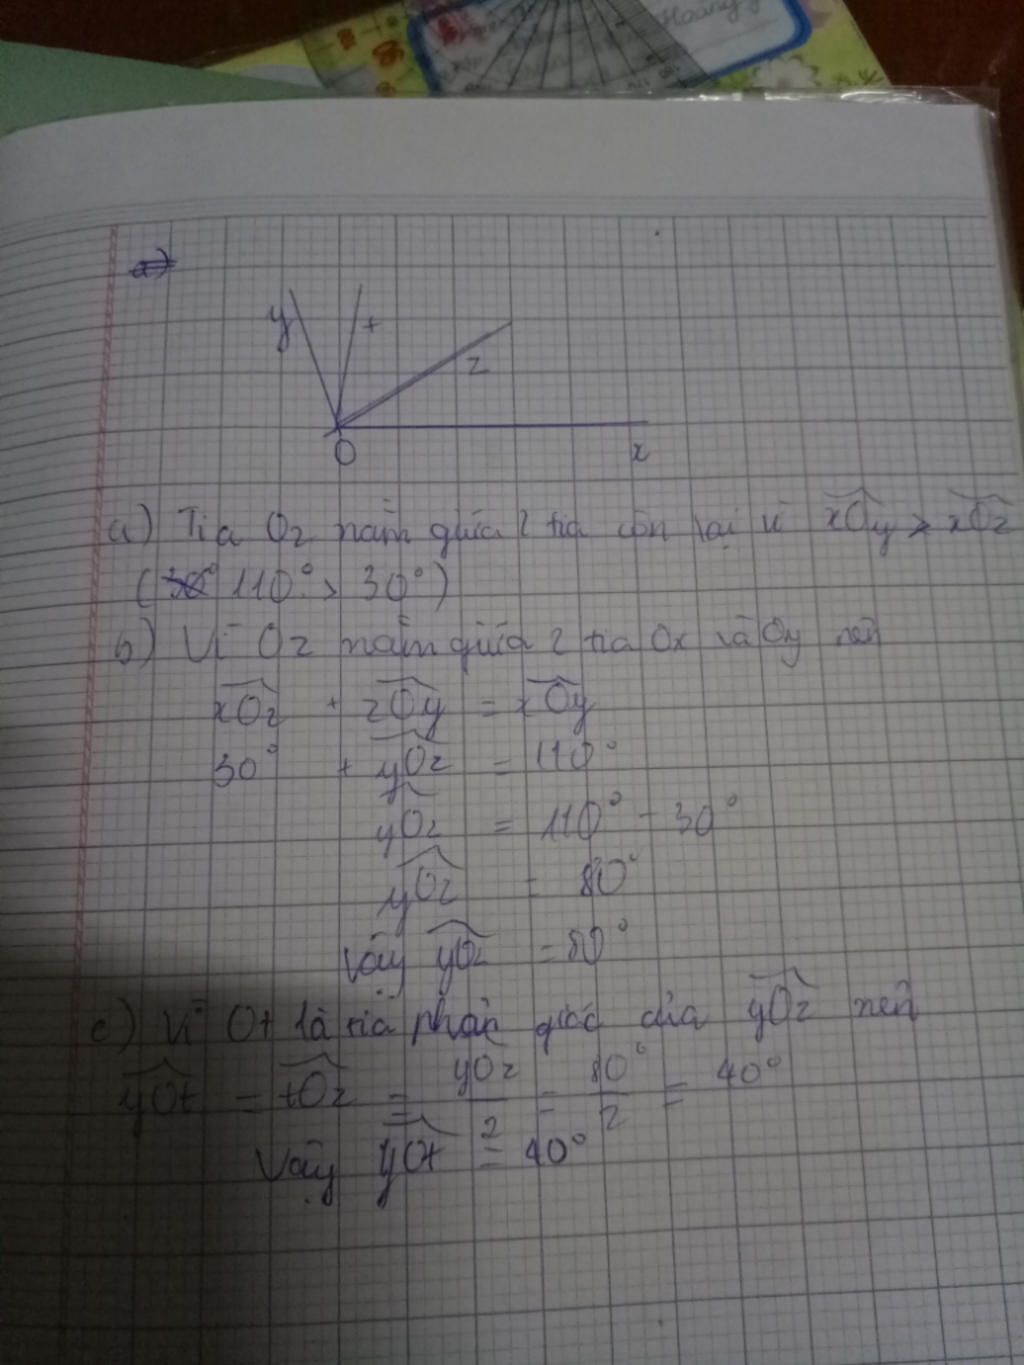 Hoàng
a)
y
t
z
O
x
a) Tia Oz nằm giữa 2 tia còn lại vì xOy > xOz
(30° 110° > 30°)
b) Vì Oz nằm giữa 2 tia Ox và Oy nên
xOz + zOy = xOy
30° + yOz = 110°
yOz = 110° - 30°
yOz = 80°
Vậy yOz = 80°
c) Vì Ot là tia phân giác của yOz nên
yOt = tOz = yOz/2 = 80°/2 = 40°
Vậy yOt = 40°